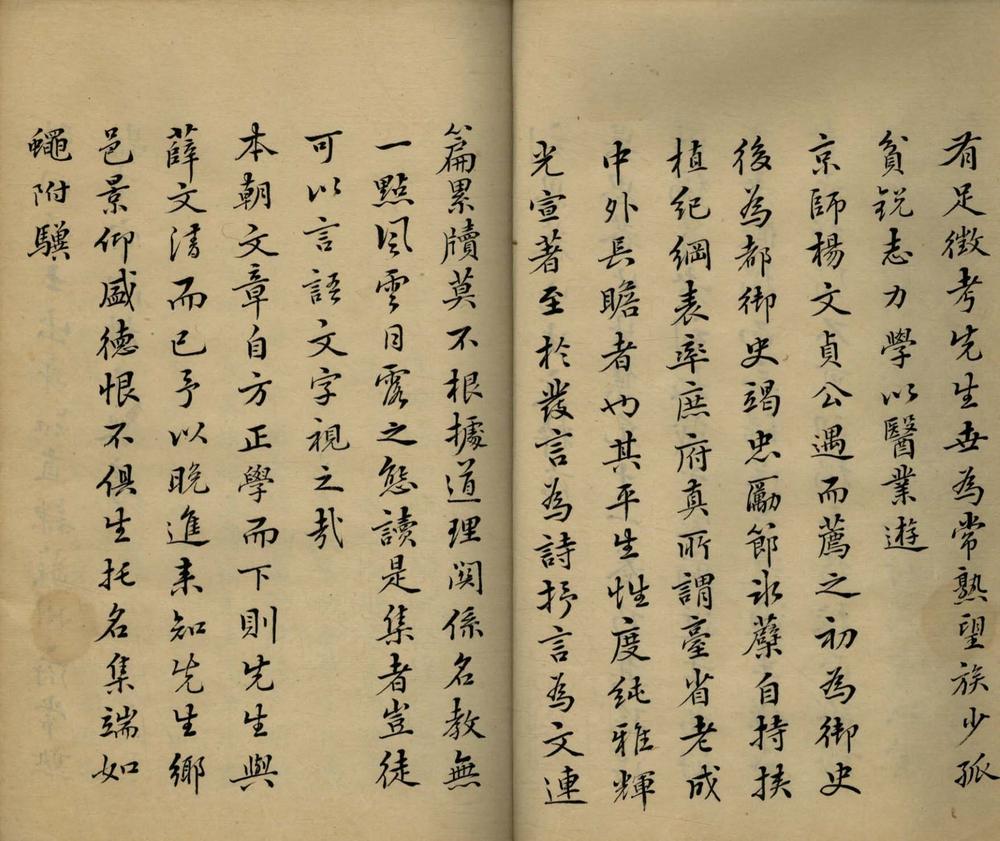 有足徵考先生世為常熟望族少孤
貧銳志力學以醫業遊
京師楊文貞公遇而薦之初為御史
後為都御史竭忠勵節氷蘗自持挟
植紀綱表率庶府真所謂臺省老成
中外具瞻者也其平生性度純雅輝
光宣著至於發言為詩抒言為文連
篇累牘莫不根據道理関係名教無
一點風雲月露之態讀是集者豈徒
可以言語文字視之哉
本朝文章自方正學而下則先生與
薛文清而已予以晚進未知先生鄉
邑景仰盛德恨不俱生托名集端如
蠅附驥